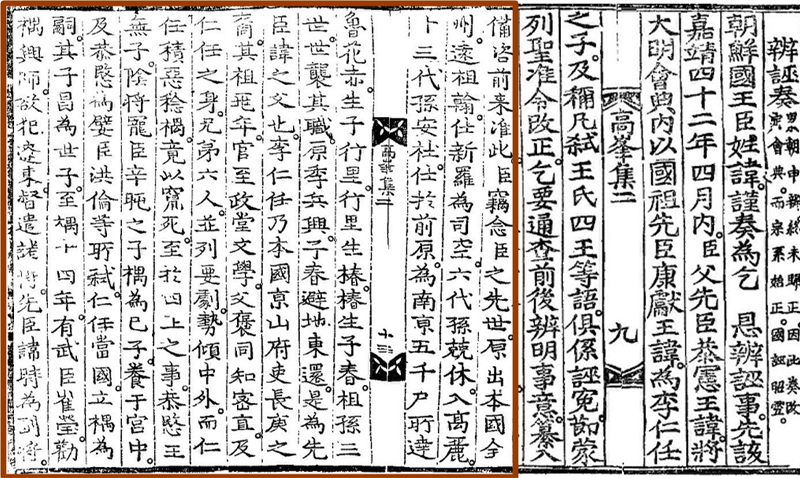 辨誣奏 累朝申辨終未歸正。因此奏改
會典。而宗系始正國誣昭雪。
朝鮮國王臣姓諱謹奏為乞 恩辨誣事。先該
嘉靖四十二年四月內。臣父先臣恭憲王諱。將
大明會典內以國祖先臣康獻王諱。為李仁任
高峯集二 九
之子。及稱凡弑王氏四王等語。俱係誣冤。節蒙
列聖准令改正。乞要通查前後辨明事意。纂入
備咨前來。准此。臣竊念臣之先世。原出本國全
州。遠祖翰。仕新羅為司空。六代孫兢休。入高麗。
十三代孫安社。仕於前原。為南京五千戶所達
高峯集二 十三
魯花赤。生子行里。行里生椿。椿生子春。祖孫三
世世襲其職。原季兵興。子春避地東還。是為先
臣諱之父也。李仁任乃本國京山府吏長庚之
裔。其祖兆年。官至政堂文學。父褒同知密直。及
仁任之身。兄弟六人。並列要劇。勢傾中外。而仁
任積惡稔禍。竟以竄死。至於四上之事。恭愍王
無子。陰將寵臣辛旽之子禑為己子。養于宮中。
及恭愍為嬖臣洪倫等所弑。仁任當國。立禑為
嗣。其子昌為世子。至禑十四年。有武臣崔瑩勸
禑興師。欲犯遼東。督遣諸將。先臣諱時為副將。